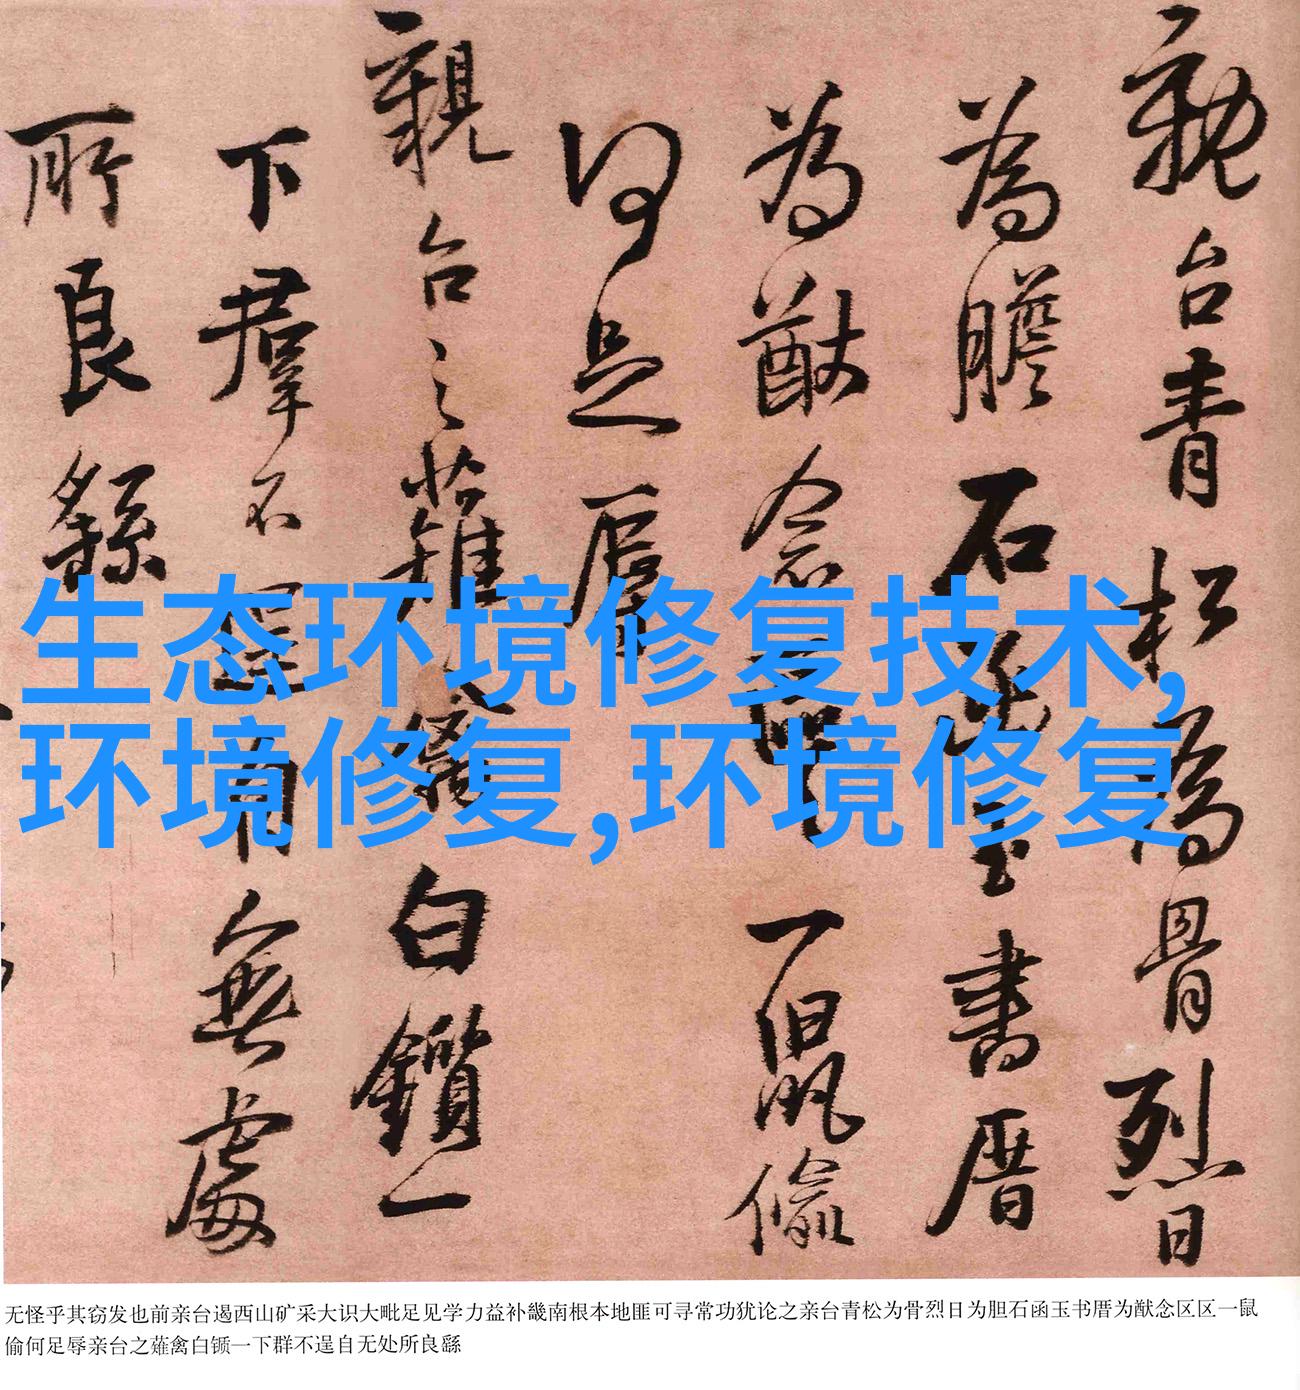 親台青松為骨烈日
為膽石函玉書厝
為猷念區區一鼠偷
何足辱
親台之薙禽白鑕一
下群不逞自無處
所良繇
生态环境修复技术,
环境修复,环境修复
无怪乎其窃发也前亲台遏西山矿采大识大毗足见学力益补畿南根本地匪可寻常功犹论之亲台青松为骨烈日为胆石函玉书厝为猷念区区一鼠
偷何足辱亲台之薙禽白锧一下群不逞自无处所良繇